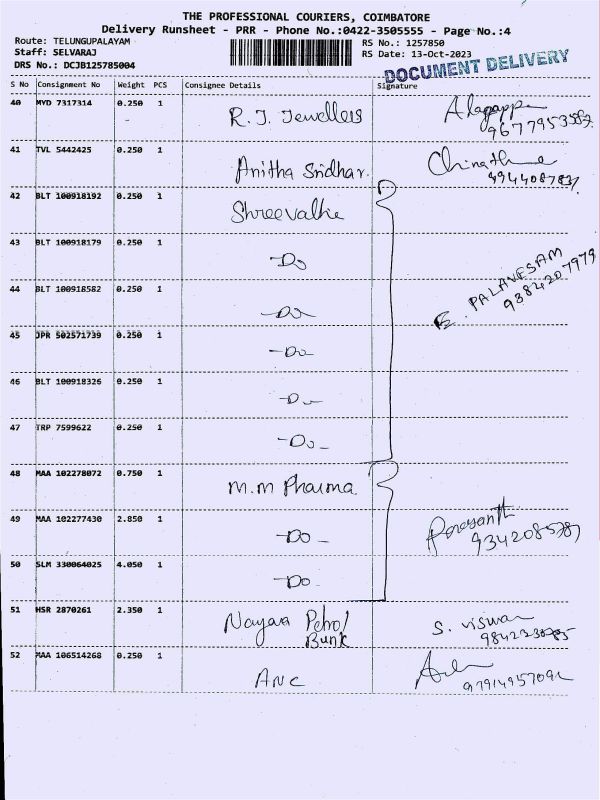 THE PROFESSIONAL COURIERS, COIMBATORE
Delivery Runsheet - PRR - Phone No.:0422-3505555 - Page No.:4
Route: TELUNGUPALAYAM RS No.: 1257850
Staff: SELVARAJ RS Date: 13-Oct-2023
DRS No.: DCJB125785004
DOCUMENT DELIVERY
S No Consignment No Weight PCS Consignee Details Signature
40 MYD 7317314 0.250 1 R.J. Jewellers Alagappa
41 TVL 5442425 0.250 1 Anitha Sridhar.
42 BLT 100918192 0.250 1
43 BLT 100918179 0.250 1 -Do
44 BLT 100918582 0.250 1 -Do E. PALAVESAM
9384207979
45 JPR 502571739 0.250 1 -Do
46 BLT 100918326 0.250 1 -Do-
47 TRP 7599622 0.250 1 -Do-
48 MAA 102278072 0.750 1 M.M Pharma
49 MAA 102277430 2.850 1 -Do-
50 SLM 330064025 4.050 1 -Do-
51 HSR 2870261 2.350 1 Nayara Petrol
Bunk S. viswa
52 MAA 106514268 0.250 1 ANC